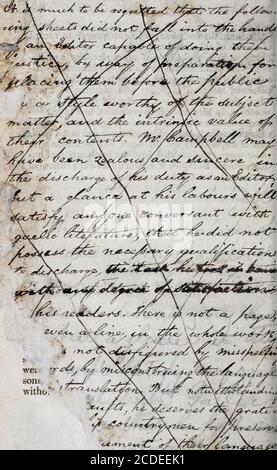 It is much to be regretted that the follow
ing sheets did not fall into the hands
of an Editor capable of doing them
justice, by way of preparation for
placing them before the public
a style worthy of the subject
matter and the intrinsic value of
their contents. Mr. Campbell may
have been zealous and sincere in
the discharge of his duty as an Editor
but a glance at his labours will
satisfy any one conversant with
Gaelic literature, that he did not
possess the necessary qualifications
to discharge the task he took in
with any degree of satisfaction
his readers. There is not a page,
even a line in the whole work,
s not disfigured by misspelt
wer rds, by misconstruing the language
sons translation. But notwithstanding
witho. faults, he deserves the grate
countrymen for preserv
ument of their language
alamy
Image ID: 2CDEEK1
www.alamy.com